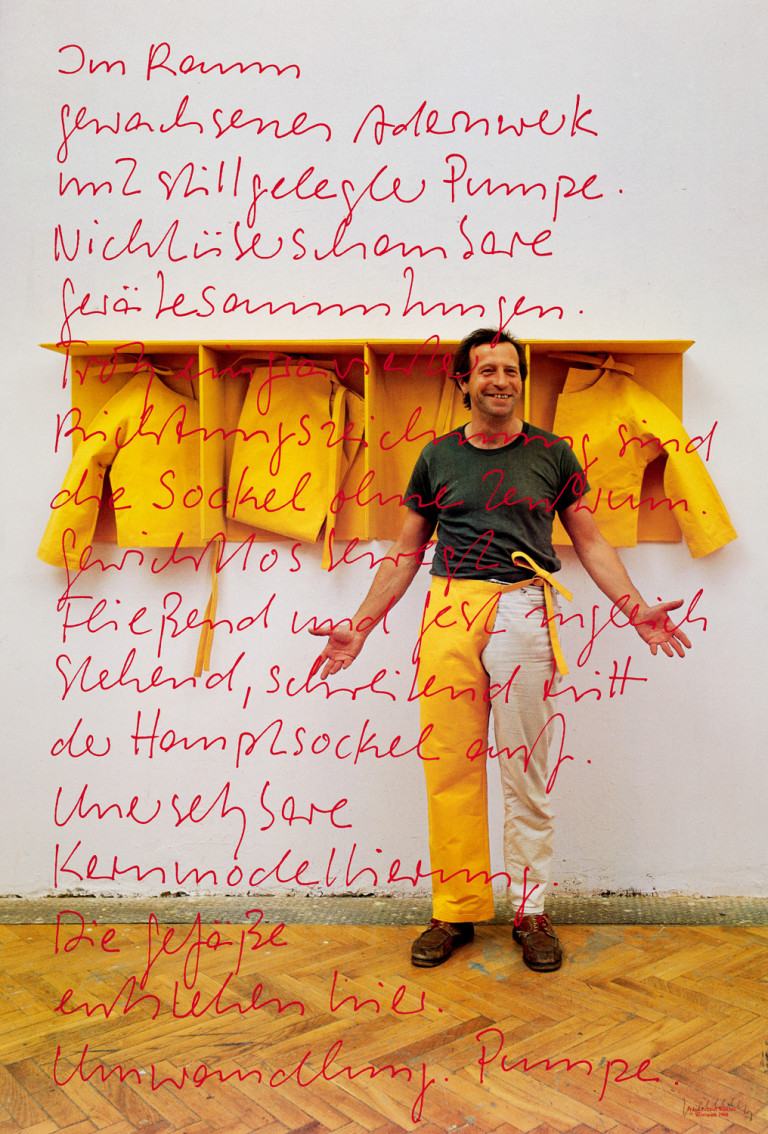 Im Raum
gewachsenes Adernwerk
mit stillgelegter Pumpe.
Nichtüberschaubare
gerätesammlungen.
Trotz eingravierter
Richtungszeichnung sind
die Sockel ohne Zentrum.
gewichtlos bewegt
Fließend und fest zugleich
Stehend, schreitend tritt
der Hauptsockel auf.
Unersetzbare
Kernmodellierung.
Die gefäße
entstehen hier.
Umwandlung. Pumpe.